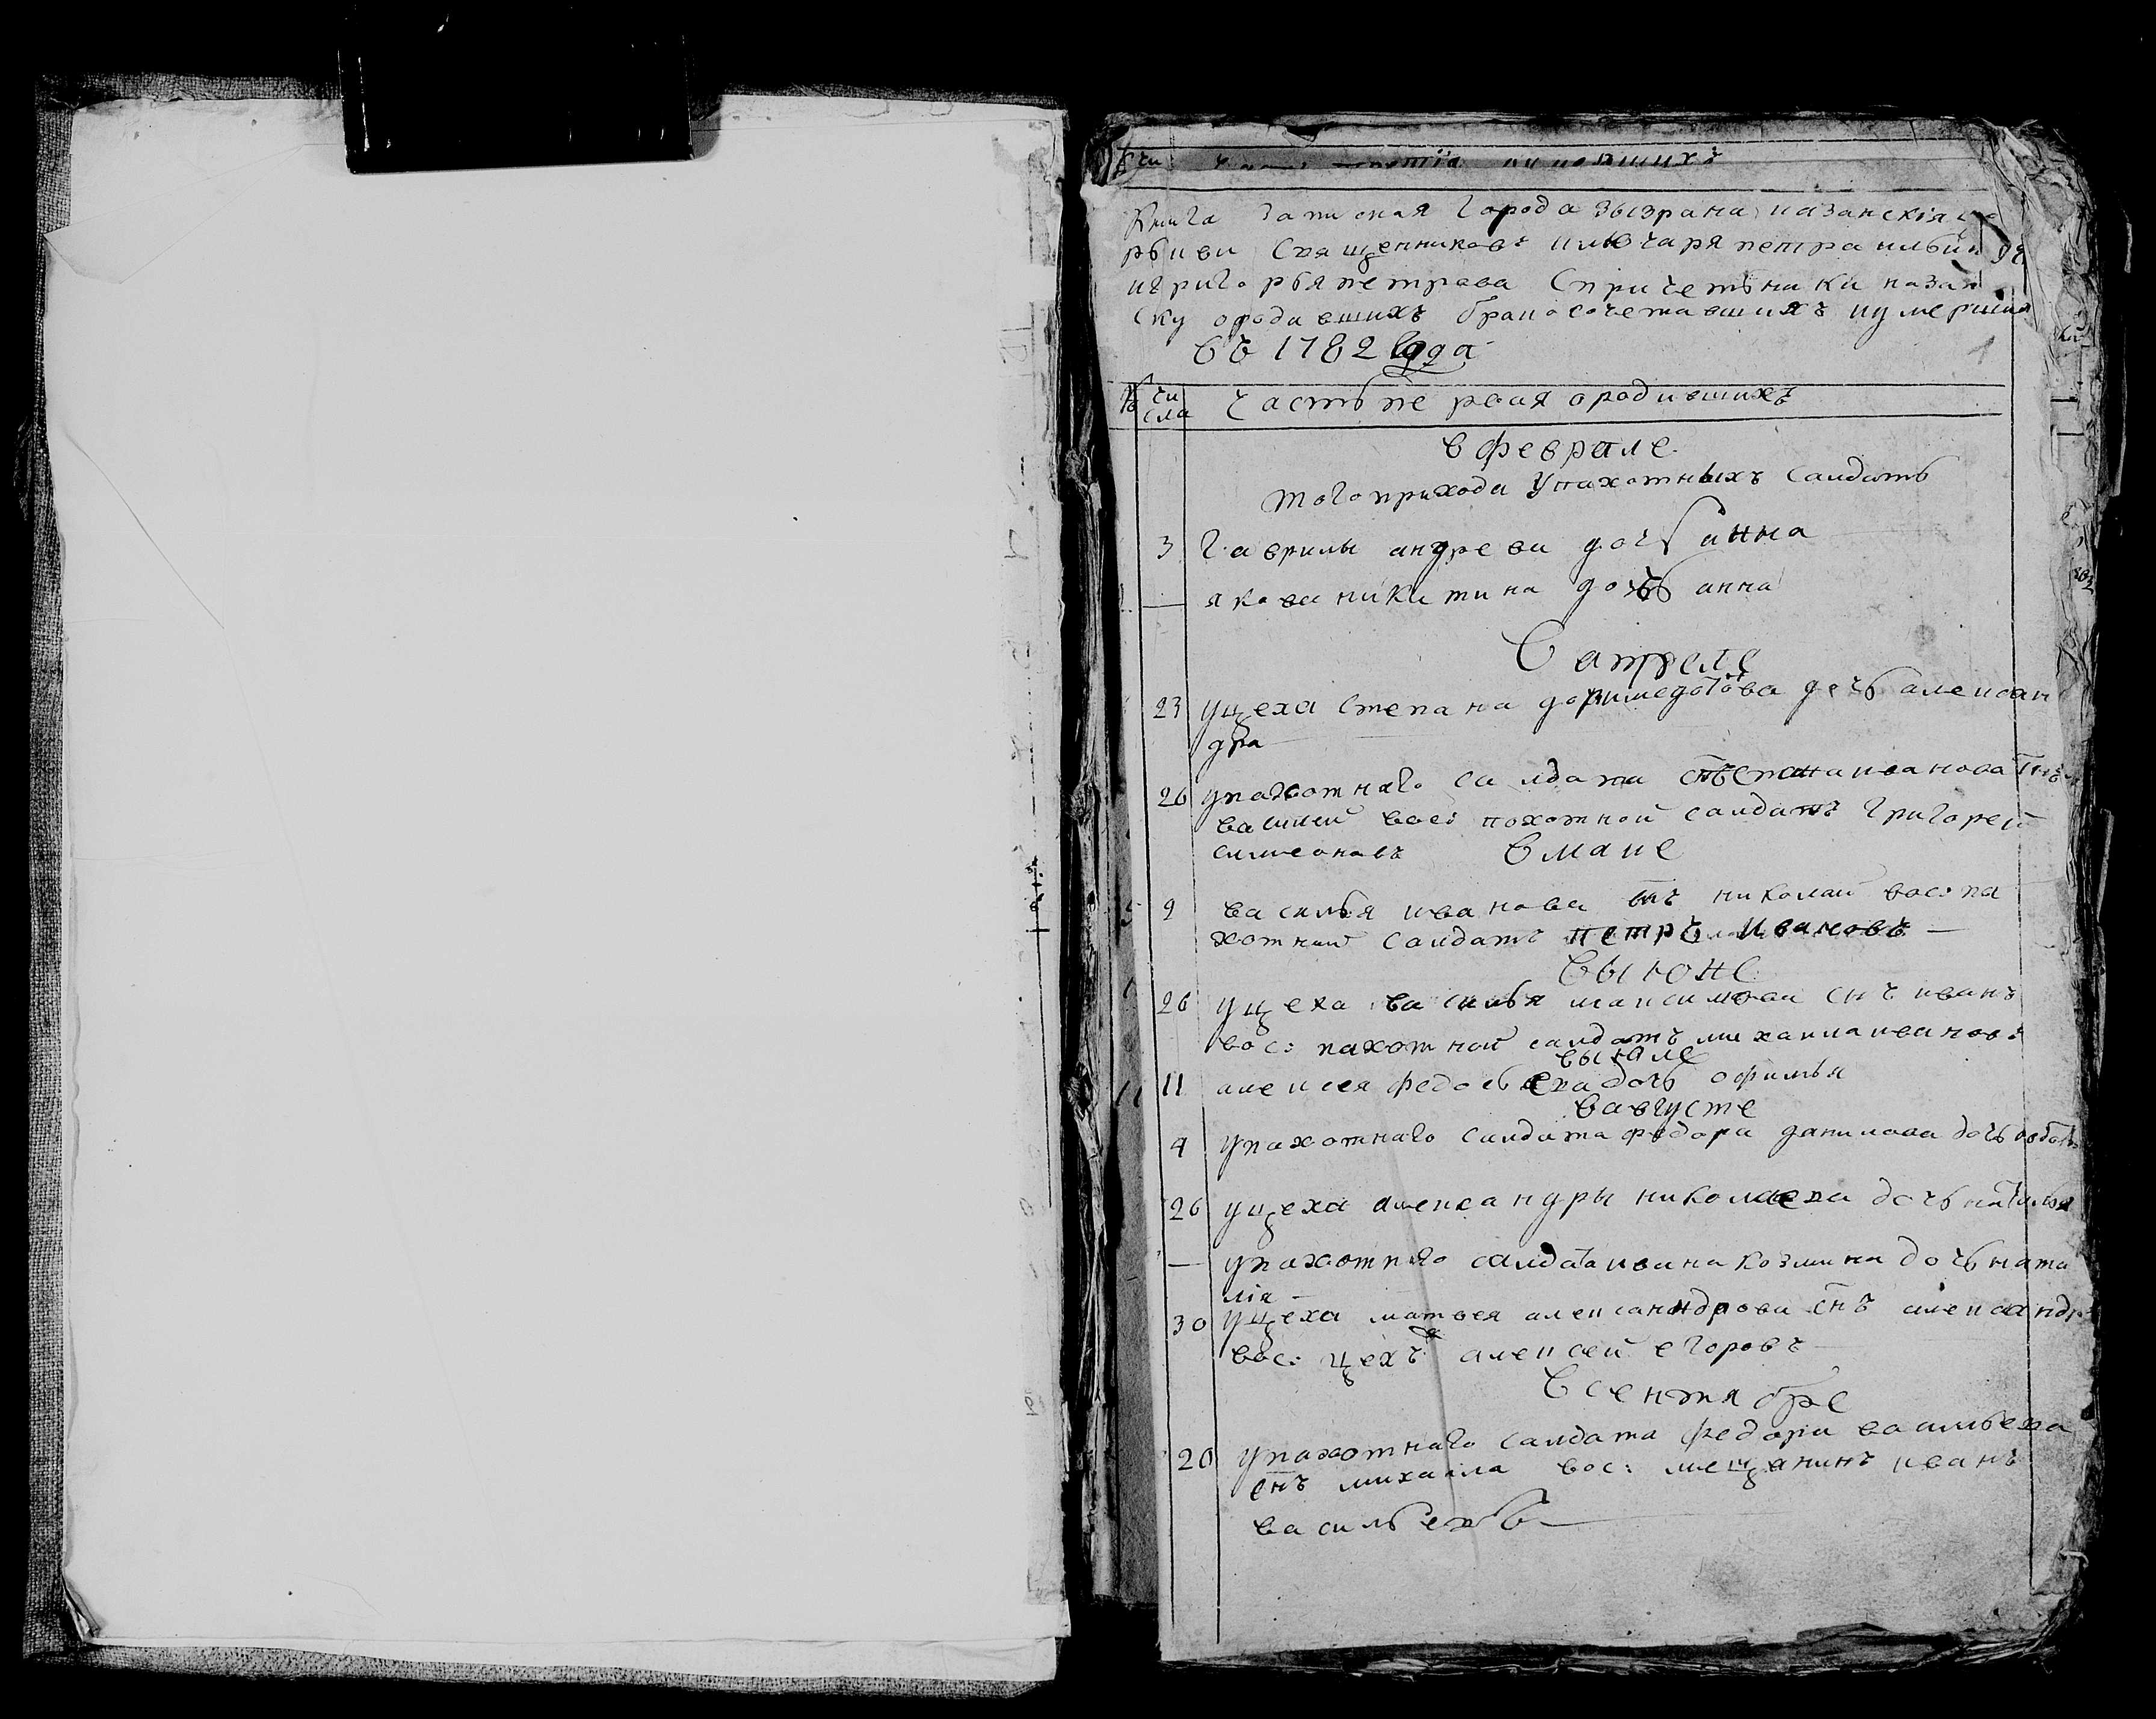 чи
третїа
книга записная города Сызрана казанския це
рькви священниковъ ключаря петра ильина
игригорья петрова спричетьники
ску ородившихъ бракосочетавшихъ иумерших
въ 1782 года
1
№ чи
сла часть первая ородившихъ
в феврале
того прихода упахотныхъ салдатъ
3 гаврилы андреева дочь анна
— якова никитина дочь анна
в апреле
23 уцеха степана доримедотова дочь алексан
дра
26 упахотнаго салдата степана иванова снъ
василей вос: похотной салдатъ григорей
симеоновъ в маие
9 василья иванова снъ николай вос: па
хотный салдатъ петръ ивановъ
выюне
26 уцеха василья максимова снъ иванъ
вос: пахотной салдатъ михаила ивановъ
выюле
11 алексея федосеева дочь офимья
вавгусте
4 упахотнаго салдата федора данилова дочь
26 уцеха александры николаева дочь наталья
— упахотняго салдата ивана козмина дочь ната
лія
30 уцеха матвея александрова снъ александръ
вос: цехъ алексей егоровъ
в сентябре
20 упахотнаго салдата федора васильева
снъ михаила вос: мещанинъ иванъ
васильевъ